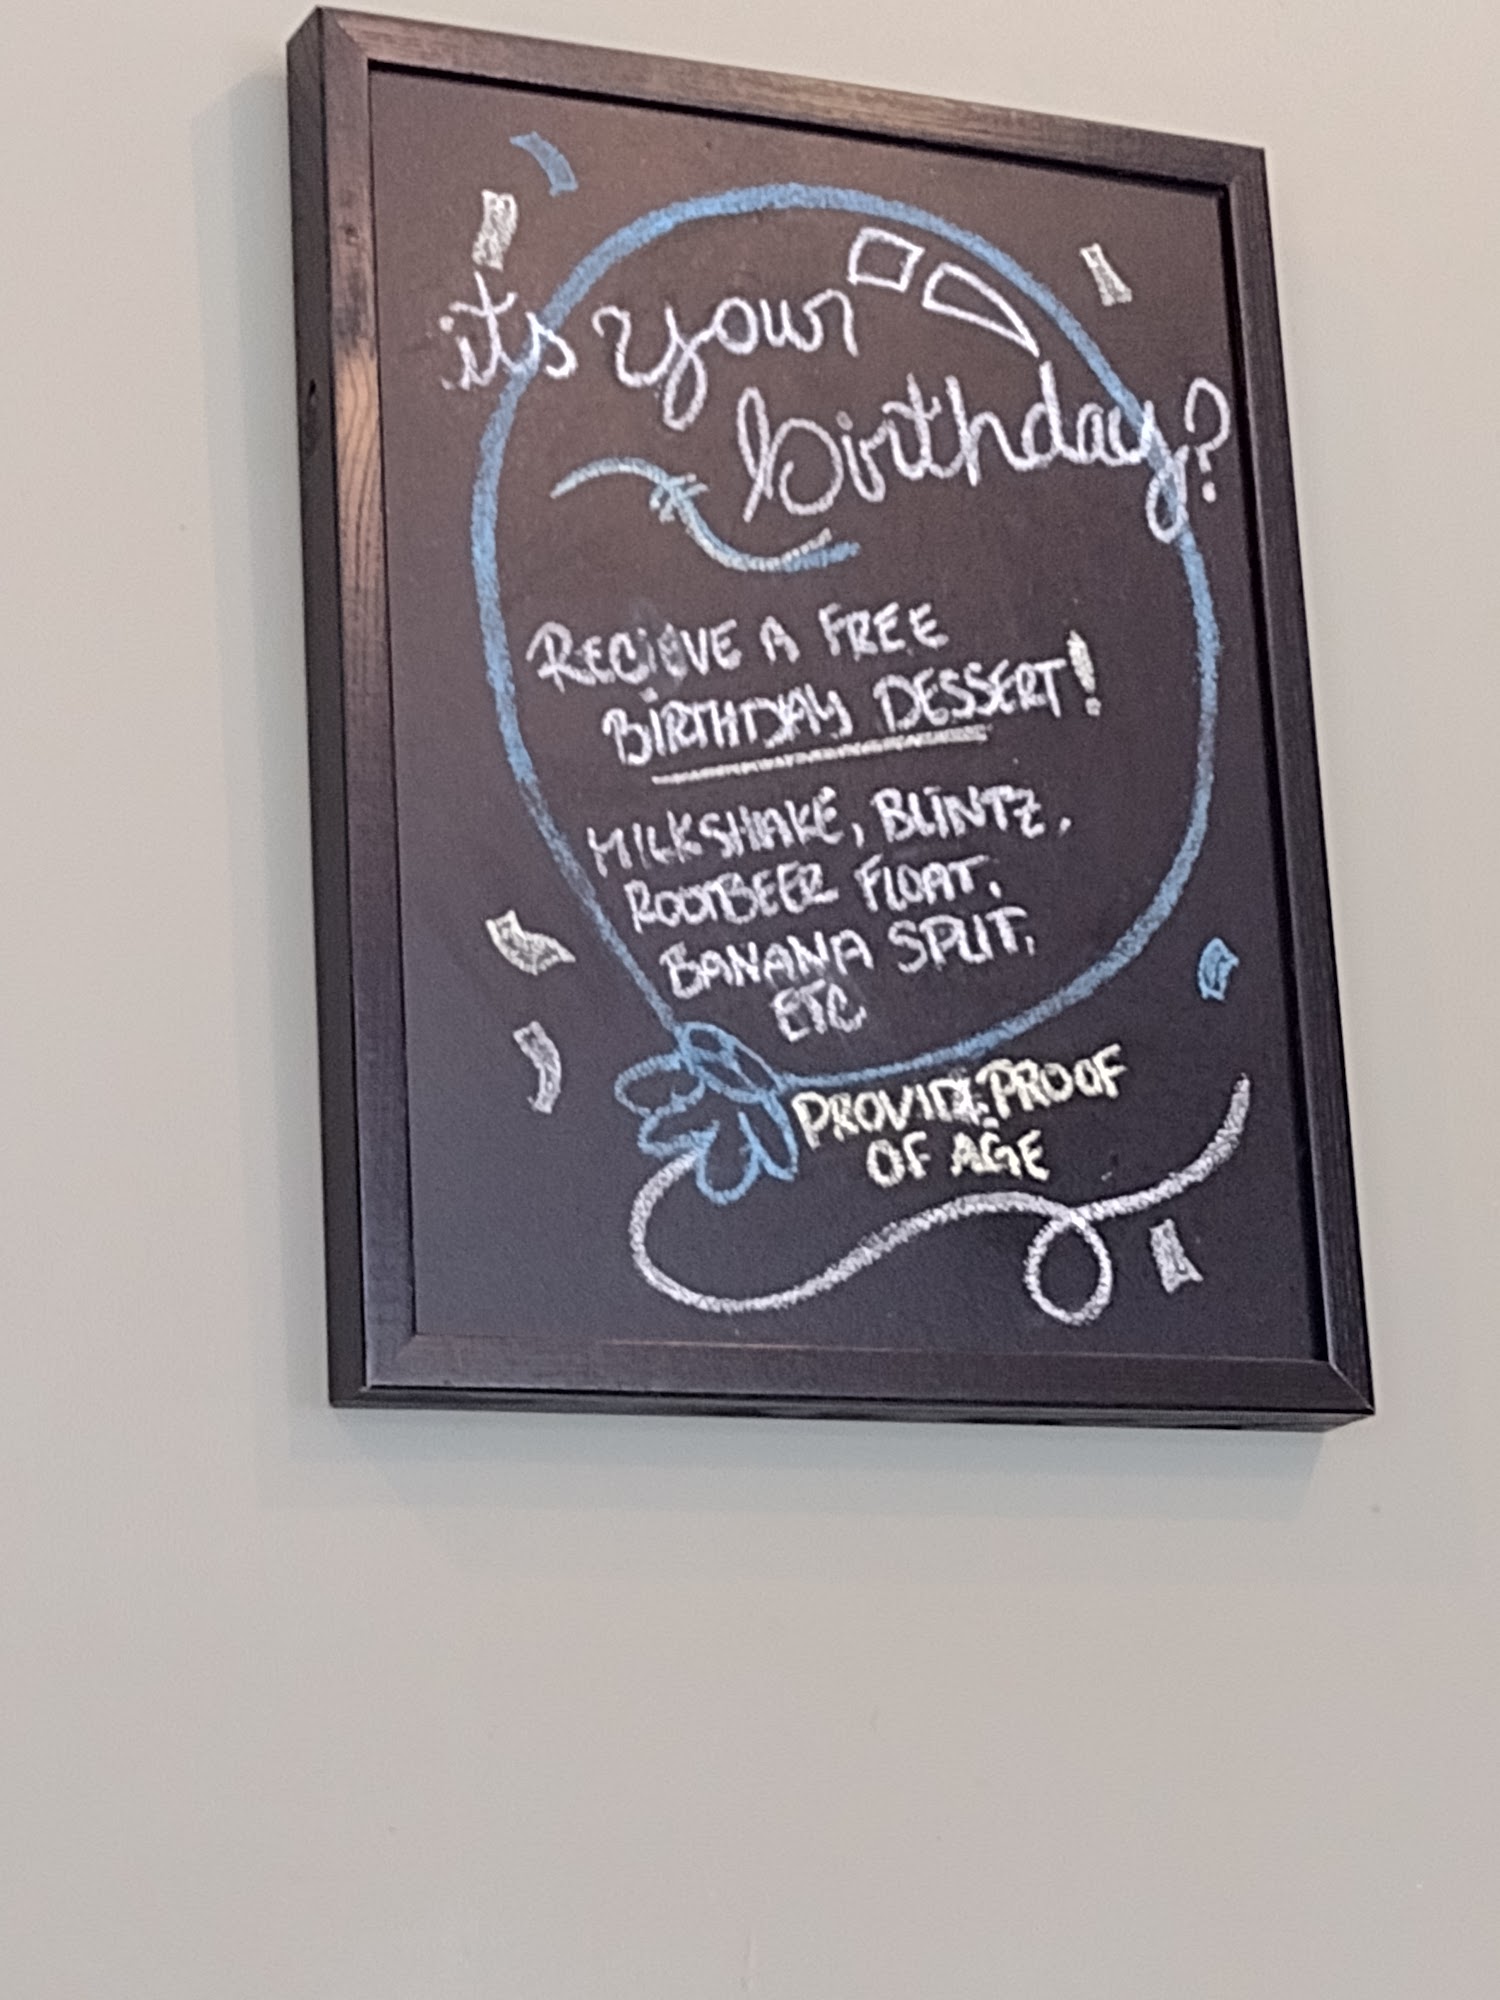 it's your
birthday?
RECIEVE A FREE
BIRTHDAY DESSERT!
MILKSHAKE, BLINTZ,
ROOTBEER FLOAT,
BANANA SPLIT,
ETC
PROVIDE PROOF
OF AGE